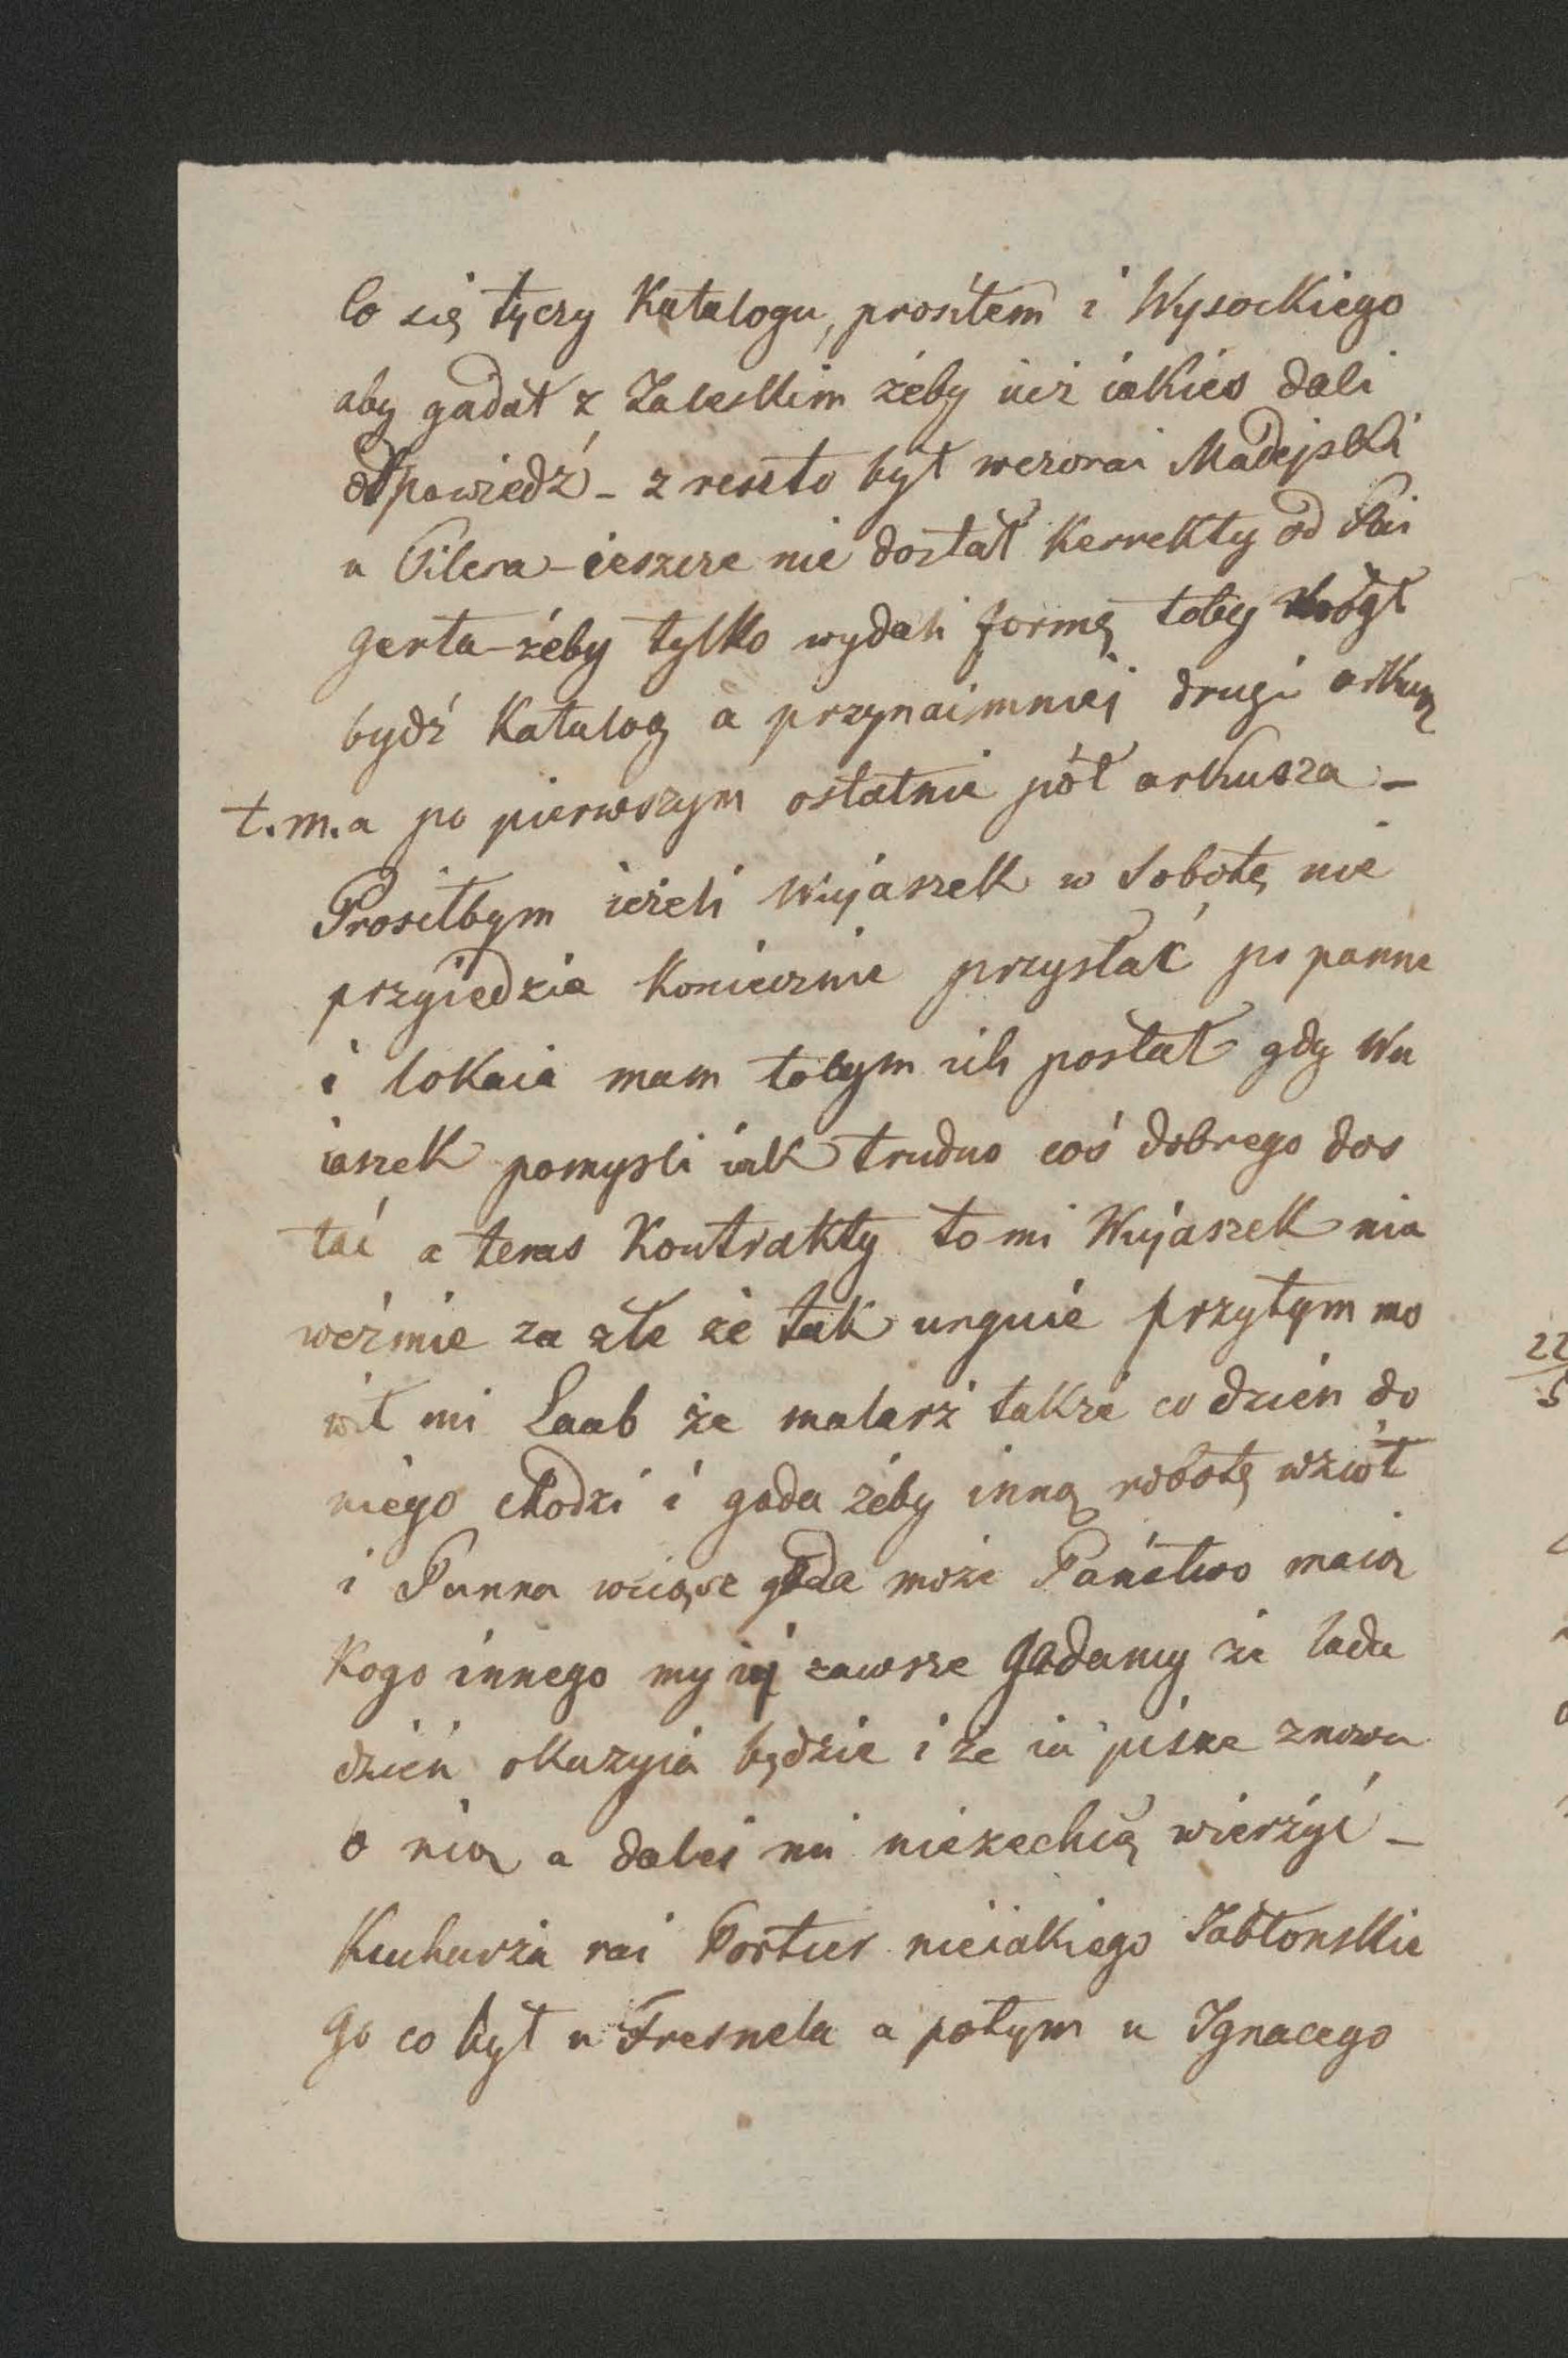 Co się tyczy Katalogu, prosiłem i Wysockiego
aby gadał z Zaleskim żeby iuż iakieś dali
odpowiedź – z reszto był wczorai Madejski
u Pilera – ieszcze nie dostał Korrekty od Pai
gerta – żeby tylko wydali formę toby mógł
bydź Katalog a przynaimniej drugi arkusz
t.m.a po pierwszym ostatnie pół arkusza –
Prosiłbym ieżeli Wujaszek w Sobotę nie
przyiedzie Koniecznie przysłać po panne
i lokaia mam tobym ich posłał gdy Wu
iaszek pomysli iak trudno coś dobrego dos
tać a teras Kontrakty to mi Wujaszek nie
weźmie za złe że tak urguie przytym mo
wił mi Laab że malarz także co dzień do
niego chodzi i gada żeby inną robotę wziół
i Panna wciąsz gada może Państwo maią
Kogo innego my iej zawsze gadamy że lada
dzień okazyia będzie i że ia pisze znowu
o nią a dalei mi niezechcą wierzyć –
Kucharza rai Portier nieiakiego Jabłonskie
go co był u Fresnela a potym u Ignacego
22
5